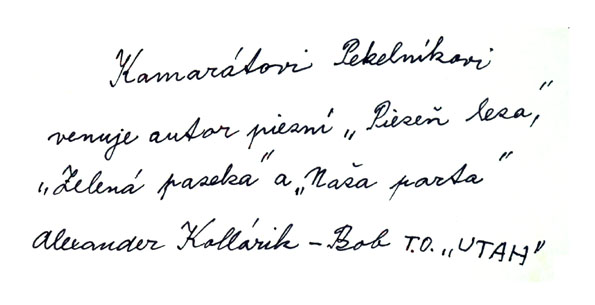 Kamarátovi Pekelníkovi
venuje autor piesní „Pieseň lesa,"
„Zelená paseka" a „Naša parta"
Alexander Kollárik - Bob T.O. „UTAH"